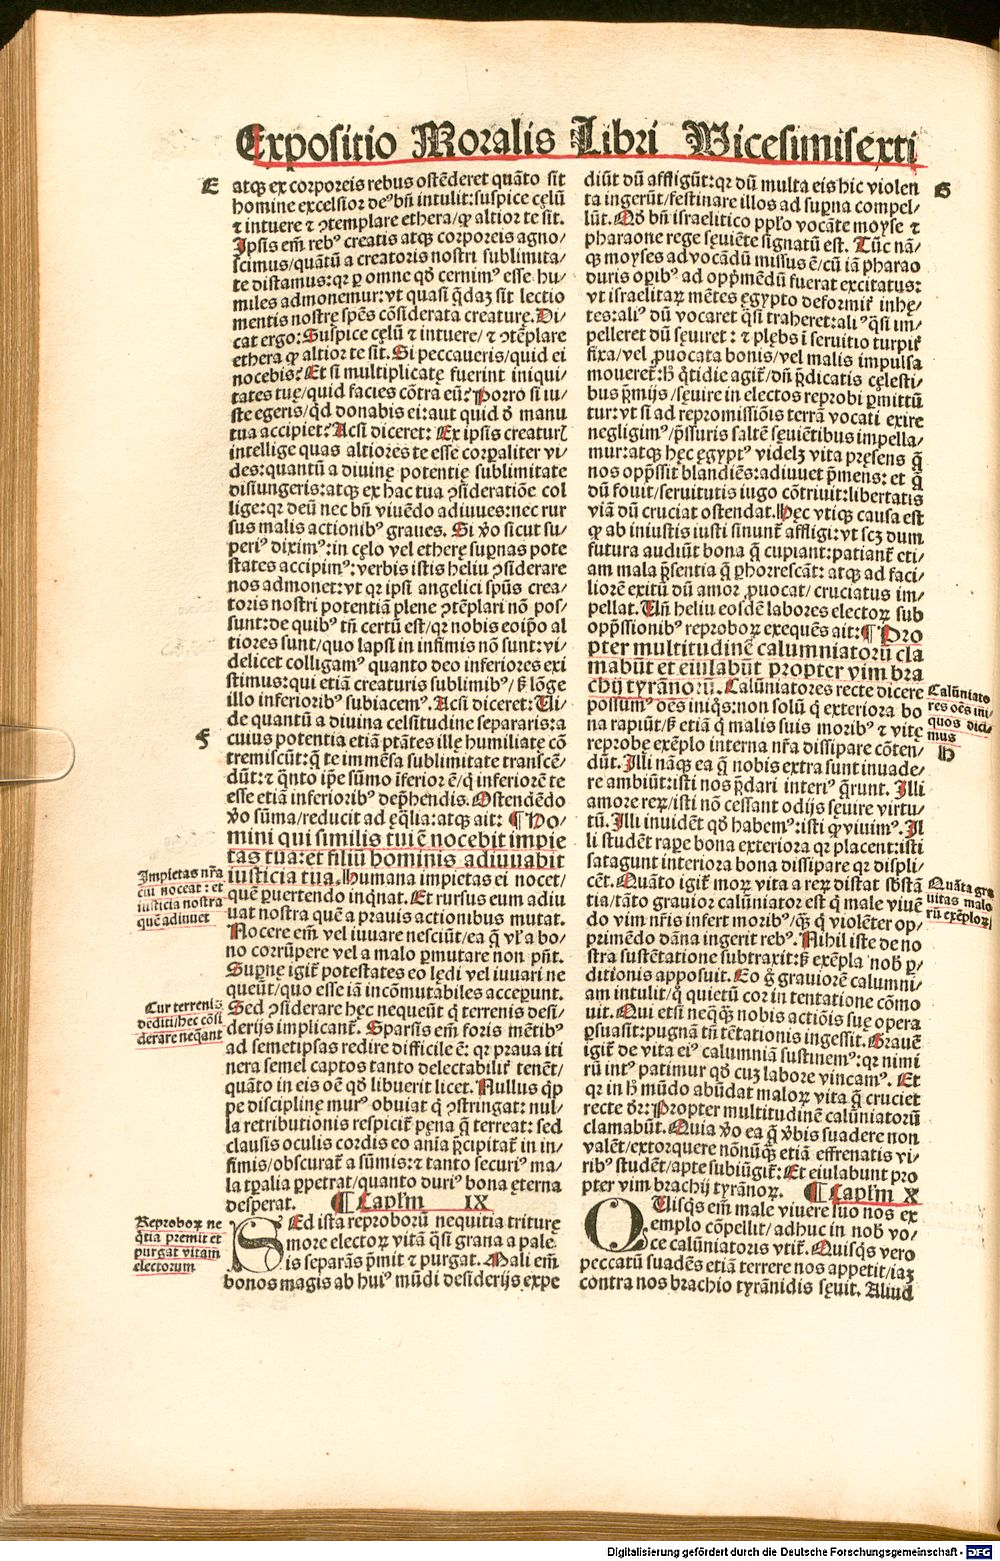 Expositio Moralis Libri Vicesimisexti
E
atqꝫ ex corporeis rebus ostēderet quāto sit
homine excelsior deꝰ bñ intulit: suspice cęlū
⁊ intuere ⁊ ↄtemplare ethera/ꝙ altior te sit.
Ipsis em̄ rebꝰ creatis atqꝫ corporeis agno/
scimus/quātū a creatoris nostri sublimita/
te distamus: qꝛ ꝑ omne qđ cernimꝰ esse hu/
miles admonemur: vt quasi q̄daꝫ sit lectio
mentis nostrę spēs cōsiderata creaturę. Di/
cat ergo: Suspice cęlū ⁊ intuere/ ⁊ ↄtēplare
ethera ꝙ altior te sit. Si peccaueris/quid ei
nocebis? Et si multiplicatę fuerint iniqui/
tates tuę/quid facies cōtra eū? Porro si iu/
ste egeris/qd donabis ei: aut quid đ manu
tua accipiet? Acsi diceret: Ex ipsis creaturꝭ
intellige quas altiores te esse corꝑaliter vi/
des: quantū a diuinę potentię sublimitate
disiungeris: atqꝫ ex hac tua ↄsideratiōe col
lige: qꝛ deū nec bñ viuēdo adiuues: nec rur
sus malis actionibꝰ graues. Si v̄o sicut su/
periꝰ diximꝰ: in cęlo vel etherę suꝑnas pote
states accipimꝰ: verbis istis heliu ↄsiderare
nos admonet: vt qꝛ ipsi angelici spūs crea/
toris nostri potentiā plene ↄtēplari nō pos/
sunt: de quibꝰ tñ certū est/qꝛ nobis eoip̄o al
tiores sunt/quo lapsi in infimis nō sunt: vi/
delicet colligamꝰ quanto deo inferiores exi
stimus: qui etiā creaturis sublimibꝰ/sꝫ lōge
illo inferioribꝰ subiacemꝰ. Acsi diceret: Ui/
de quantū a diuina celsitudine separaris: a
F
cuius potentia etiā ptātes ille humiliate cō
tremiscūt: q̄ te immēsa sublimitate transcē/
dūt: ⁊ q̄nto ip̄e sūmo īferior ē/q̇ inferiorē te
esse etiā inferioribꝰ dep̄hendis. Ostendēdo
v̄o sūma/reducit ad eq̄lia: atqꝫ ait: ¶ Ho/
mini qui similis tui ē nocebit impie
tas tua: et filiū hominis adiuuabit
iusticia tua. Humana impietas ei nocet/
quē ꝑuertendo inq̇nat. Et rursus eum adiu
uat nostra quē a prauis actionibus mutat.
Nocere em̄ vel iuuare nesciūt/ea q̄ vl̓a bo/
no corrūpere vel a malo ꝑmutare non pn̄t.
Suꝑnę igit̄ potestates eo lędi vel iuuari ne
queūt/quo esse iā incōmutabiles acceꝑunt.
Sed ↄsiderare hęc nequeūt q̇ terrenis desi/
derijs implicant̄. Sparsis em̄ foris mētibꝰ
ad semetipsas redire difficile ē: qꝛ praua iti
nera semel captos tanto delectabilit̄ tenēt/
quāto in eis oē qđ libuerit licet. Nullus q̇p
pe disciplinę murꝰ obuiat q̇ ↄstringat: nul/
la retributionis respicit̄ pęna q̄ terreat: sed
clausis oculis cordis eo anīa p̄cipitat̄ in in/
fimis/obscurat̄ a sūmis: ⁊ tanto securiꝰ ma/
la tꝑalia ꝑpetrat/quanto duriꝰ bona ęterna
desperat. ¶ Caplm̄ IX
Sed ista reproborū nequitia triturę
more electoꝝ vitā q̄si grana a pale
is separās p̄mit ⁊ purgat. Mali em̄
bonos magis ab huiꝰ mūdi desiderijs expe
Impietas nr̄a
cui noceat: et
iusticia nostra
quē adiuuet
Cur terrenis
dediti/hec cōsi
derare neq̄ant
Reproboꝝ ne
q̇tia premit et
purgat vitam
electorum
G
diūt dū affligūt: qꝛ dū multa eis hic violen
ta ingerūt/festinare illos ad suꝑna compel/
lūt. Qđ bñ israelitico pplo̅ vocāte moyse ⁊
pharaone rege sęuiēte signatū est. Tūc nā/
qꝫ moyses ad vocādū missus ē/cū iā pharao
duris oꝑibꝰ ad opp̄mēdū fuerat excitatus:
vt israelitaꝝ mētes ęgypto deformit̄ inhę/
tes: aliꝰ dū vocaret q̄si traheret: aliꝰ q̄si im/
pelleret dū sęuiret: ⁊ plębs ī seruitio turpit̄
fixa/vel ꝓuocata bonis/vel malis impulsa
moueret̄: hꝭ q̇tidie agit̄/dū p̄dicatis cęlesti/
bus p̄mijs/sęuire in electos reprobi ꝑmittū
tur: vt si ad repromissiōis terrā vocati exire
negligimꝰ/p̄ssuris saltē sęuiētibus impella/
mur: atqꝫ hęc ęgyptꝰ videlꝫ vita pręsens q̄
nos opp̄ssit blandiēs: adiuuet p̄mens: et q̄
dū fouit/seruitutis iugo cōtriuit: libertatis
viā dū cruciat ostendat. Hęc vtiqꝫ causa est
ꝙ ab iniustis iusti sinunt̄ affligi: vt scꝫ dum
futura audiūt bona q̄ cupiant: patiant̄ eti/
am mala p̄sentia q̄ ꝑhorrescāt: atqꝫ ad faci/
liorē exitū dū amor ꝓuocat/ cruciatus im/
pellat. Uñ heliu eosdē labores electoꝝ sub
opp̄ssionibꝰ reproboꝝ exequēs ait: ¶ Pro
pter multitudinē calumniatorū cla
mabūt et eiulabūt propter vim bra
chij tyrānorū. Calūniatores recte dicere
possumꝰ oēs iniq̇s: non solū q̇ exteriora bo
na rapiūt/sꝫ etiā q̇ malis suis moribꝰ ⁊ vitę
reprobę exēplo interna nr̄a dissipare cōten/
dūt. Illi nāqꝫ ea q̄ nobis extra sunt inuade/
re ambiūt: isti nos p̄dari interiꝰ q̄runt. Illi
amore reꝝ/isti nō cessant odijs sęuire virtu/
tū. Illi inuidēt qđ habemꝰ: isti ꝙ viuimꝰ. Il
li studēt raꝑe bona exteriora qꝛ placent: isti
satagunt interiora bona dissipare qꝛ displi/
cēt. Quāto igit̄ moꝝ vita a reꝝ distat sb̄stā
tia/tāto grauior calūniator est q̇ male viuē
do vim nr̄is infert moribꝰ/qꝫ q̇ violēter op/
primēdo dāna ingerit rebꝰ. Nihil iste de no
stra sustētatione subtraxit: sꝫ exēpla nob̄ ꝑ/
ditionis apposuit. Eo g̊ grauiorē calumni/
am intulit/q̇ quietū cor in tentatione cōmo
uit. Qui etsi neq̄qꝫ nobis actiōis suę opera
ꝑsuasit: pugnā tñ tētationis ingessit. Grauē
igit̄ de vita eiꝰ calumniā sustinemꝰ: qꝛ nimi
rū intꝰ patimur qđ cuꝫ labore vincamꝰ. Et
qꝛ in hꝭ mūdo abūdat maloꝝ vita q̄ cruciet
recte dr̄: Propter multitudinē calūniatorū
clamabūt. Quia v̄o ea q̄ v̄bis suadere non
valēt/extorquere nōnūqꝫ etiā effrenatis vi/
ribꝰ studēt/apte subiūgit̄: Et eiulabunt pro
pter vim brachij tyrānoꝝ. ¶ Caplm̄ X
Quisq̇s em̄ male viuere suo nos ex
emplo cōpellit/ adhuc in nob̄ vo/
ce calūniatoris vtit̄. Quisq̇s vero
peccatū suadēs etiā terrere nos appetit/iaꝫ
contra nos brachio tyrānidis sęuit. Aliud
Calūniato
res oēs ini
quos dici/
mus
H
Quāta gra
uitas malo
rū exēploꝝ
Digitalisierung gefördert durch die Deutsche Forschungsgemeinschaft - DFG